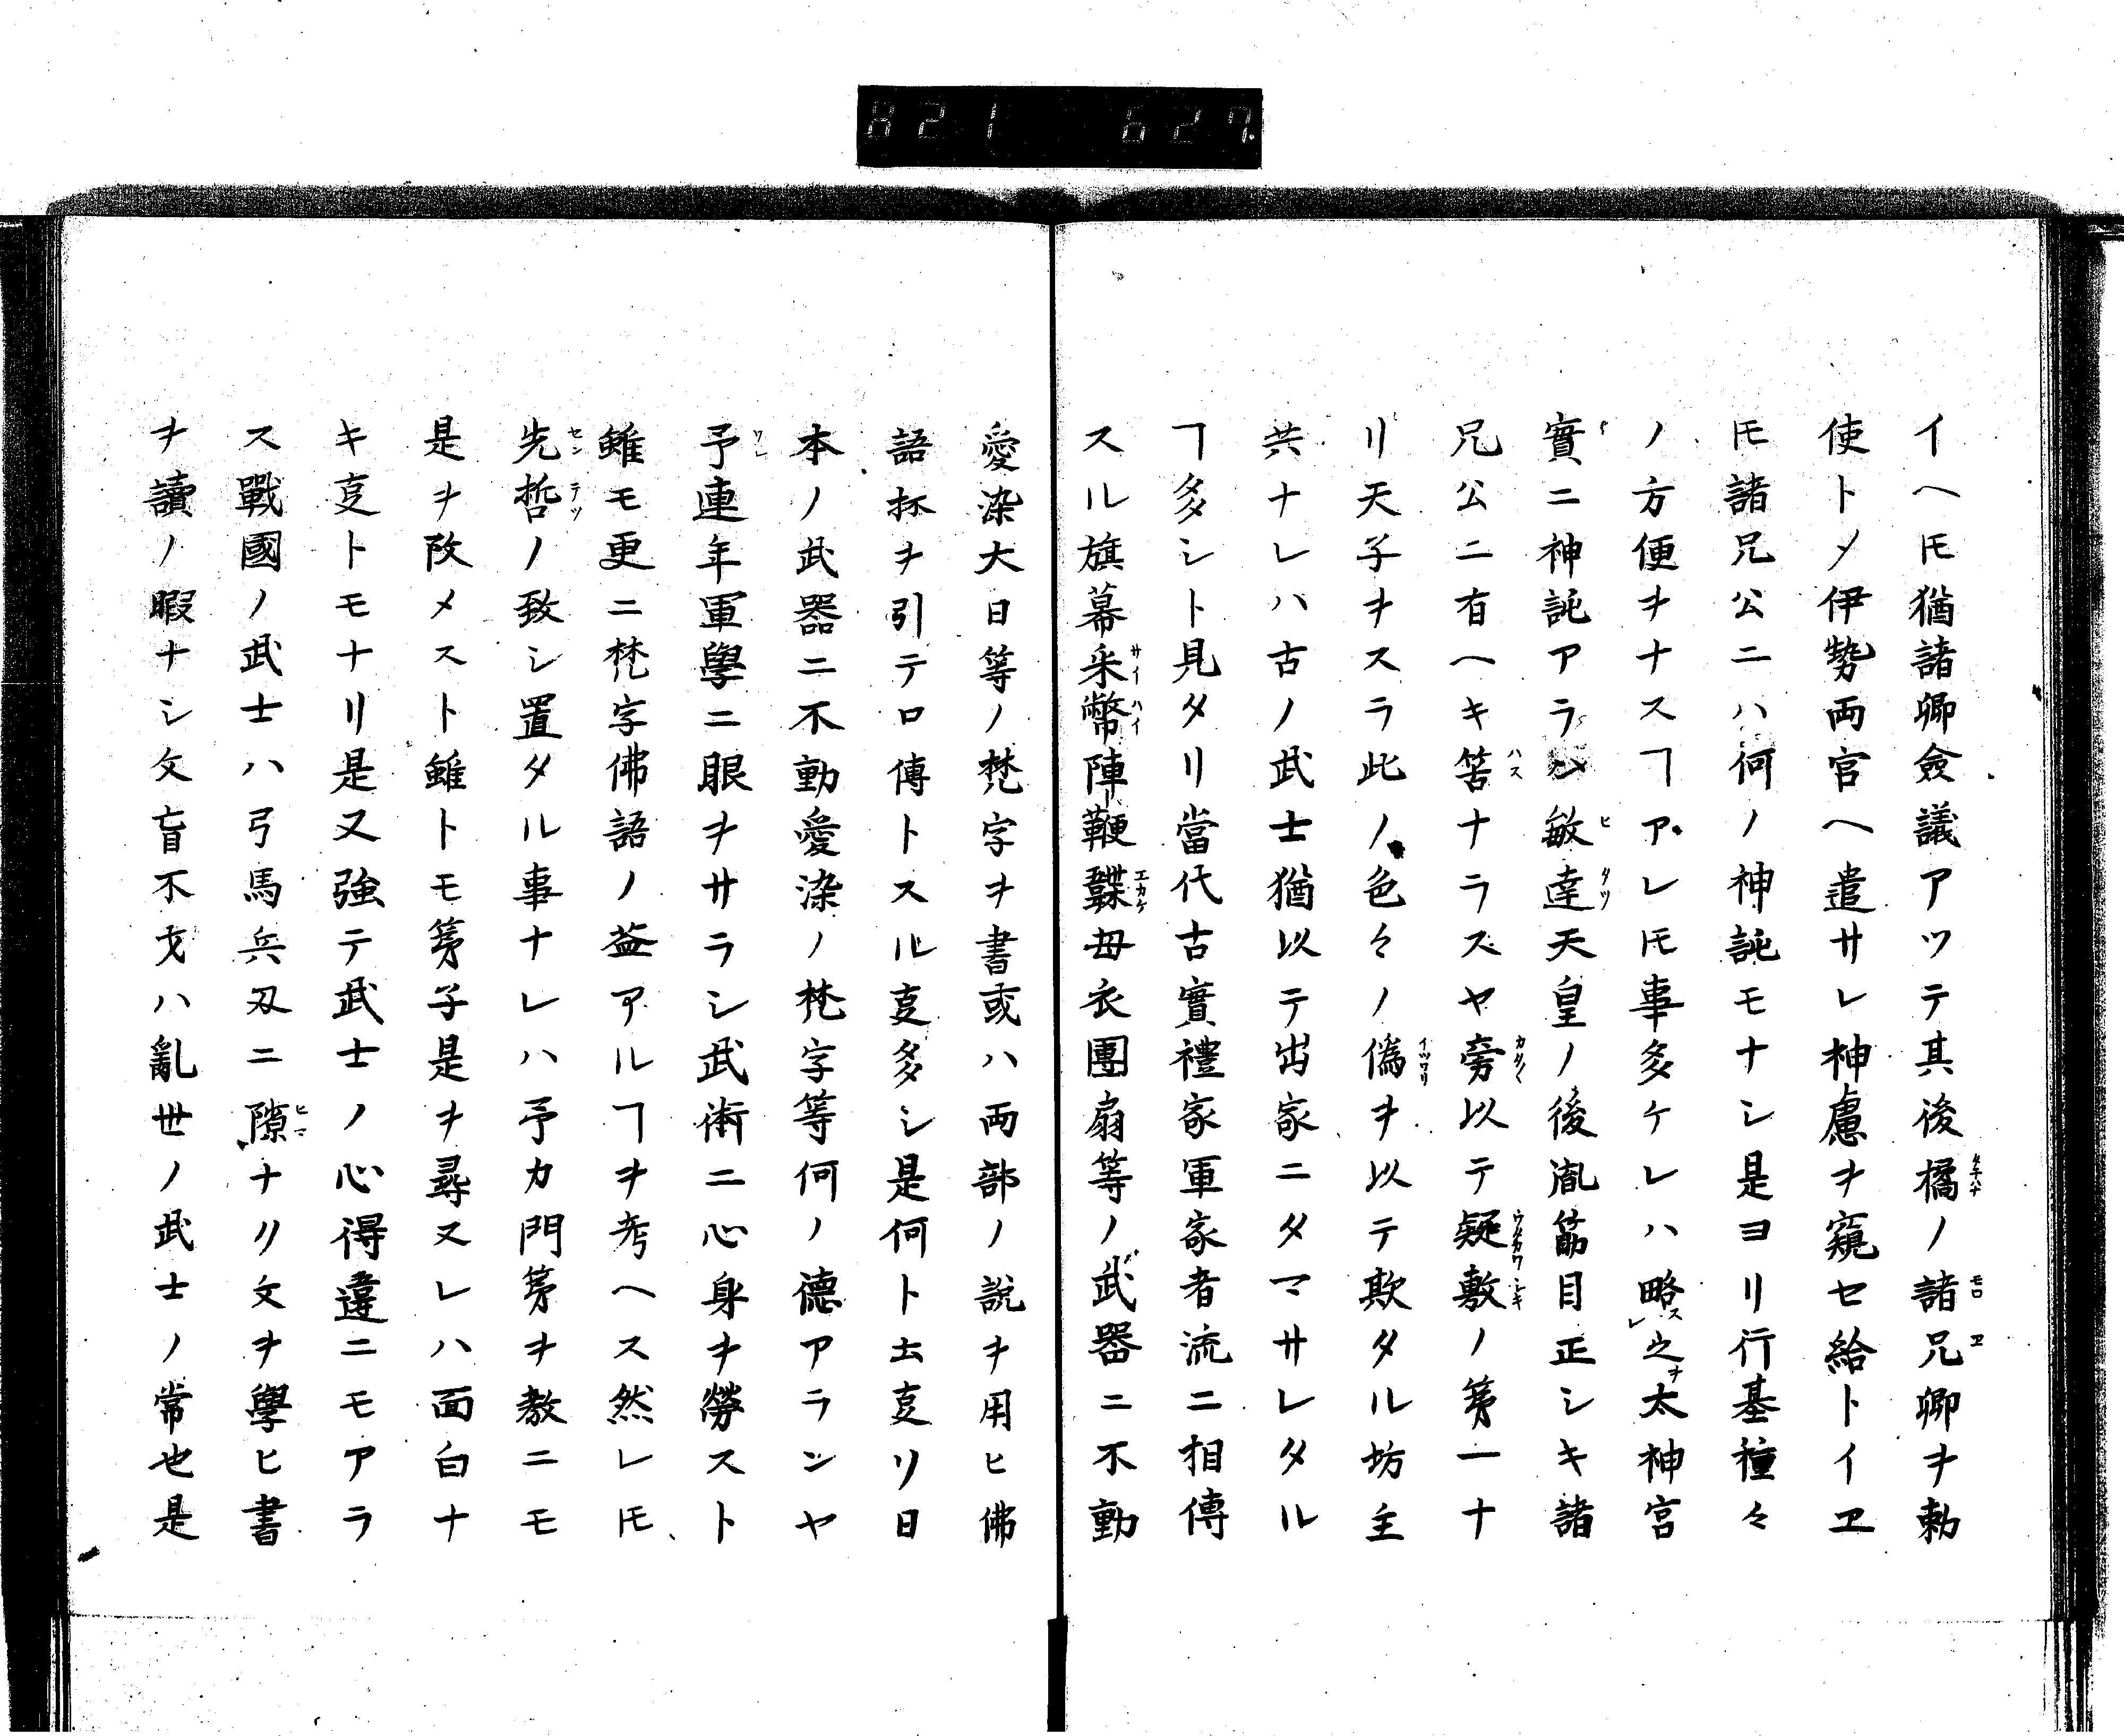 821 627
イヘ𪜈猶諸卿僉議アツテ其後橘ノ諸兄卿ヲ勅
使ト〆伊勢両宮ヘ遣サレ神慮ヲ窺セ給トイヱ
𪜈諸兄公ニハ何ノ神託モナシ是ヨリ行基種々
ノ方便ヲナスヿアレ𪜈事多ケレハ略之太神宮
實ニ神託アラン敏達天皇ノ後胤筋目正シキ諸
兄公ニ有ヘキ筈ナラスヤ旁以テ疑敷ノ第一ナ
リ天子ヲスラ此ノ色々ノ偽ヲ以テ欺タル坊主
共ナレハ古ノ武士猶以テ出家ニタマサレタル
ヿ多シト見タリ當代古實禮家軍家者流ニ相傳
スル旗幕采幣陣鞭韘母衣團扇等ノ武器ニ不動
愛染大日等ノ梵字ヲ書或ハ両部ノ説ヲ用ヒ佛
語抔ヲ引テ口傳トスル㕝多シ是何ト云㕝リ日
本ノ武器ニ不動愛染ノ梵字等何ノ德アランヤ
予連年軍學ニ眼ヲサラシ武術ニ心身ヲ勞スト
雖モ更ニ梵字佛語ノ益アルヿヲ考ヘス然レ𪜈
先哲ノ致シ置タル事ナレハ予カ門第ヲ教ニモ
是ヲ改メスト雖トモ第子是ヲ尋ヌレハ面白ナ
キ㕝トモナリ是又強テ武士ノ心得違ニモアラ
ス戰國ノ武士ハ弓馬兵刄ニ隙ナリ文ヲ學ヒ書
ヲ讀ノ暇ナシ文盲不才ハ亂世ノ武士ノ常也是